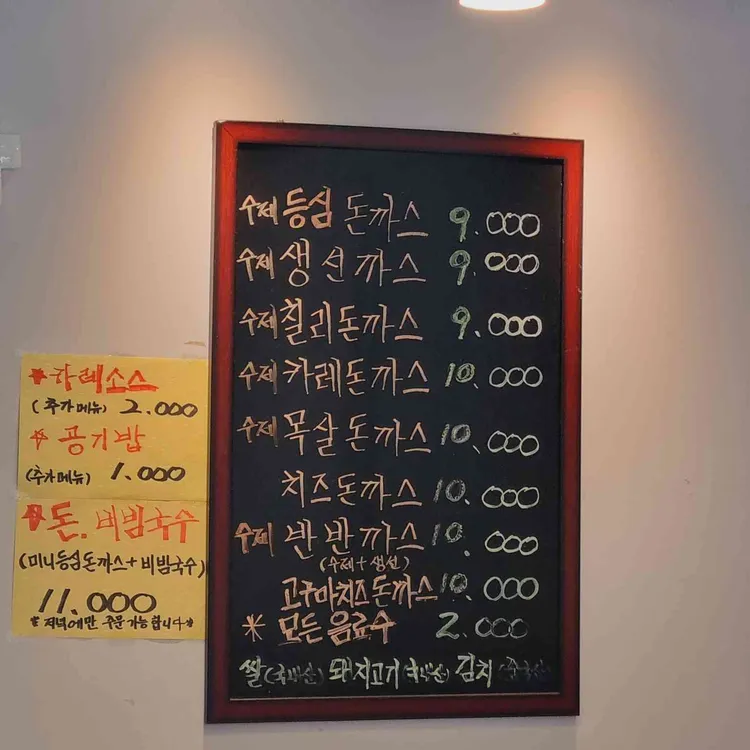 수제 등심 돈까스 9.000
수제 생선까스 9.000
수제 칠리돈까스 9.000
수제 카레돈까스 10.000
수제 목살돈까스 10.000
치즈돈까스 10.000
수제 반반까스 10.000
(수제+생선)
고구마치즈돈까스 10.000
※ 모든음료수 2.000
쌀(국내산) 돼지고기(국내산) 김치(중국산)
* 카레소스
(추가메뉴) 2.000
* 공기밥
(추가메뉴) 1.000
* 돈.비빔국수
(미니등심돈까스+비빔국수)
11.000
* 저녁에만 주문가능합니다*